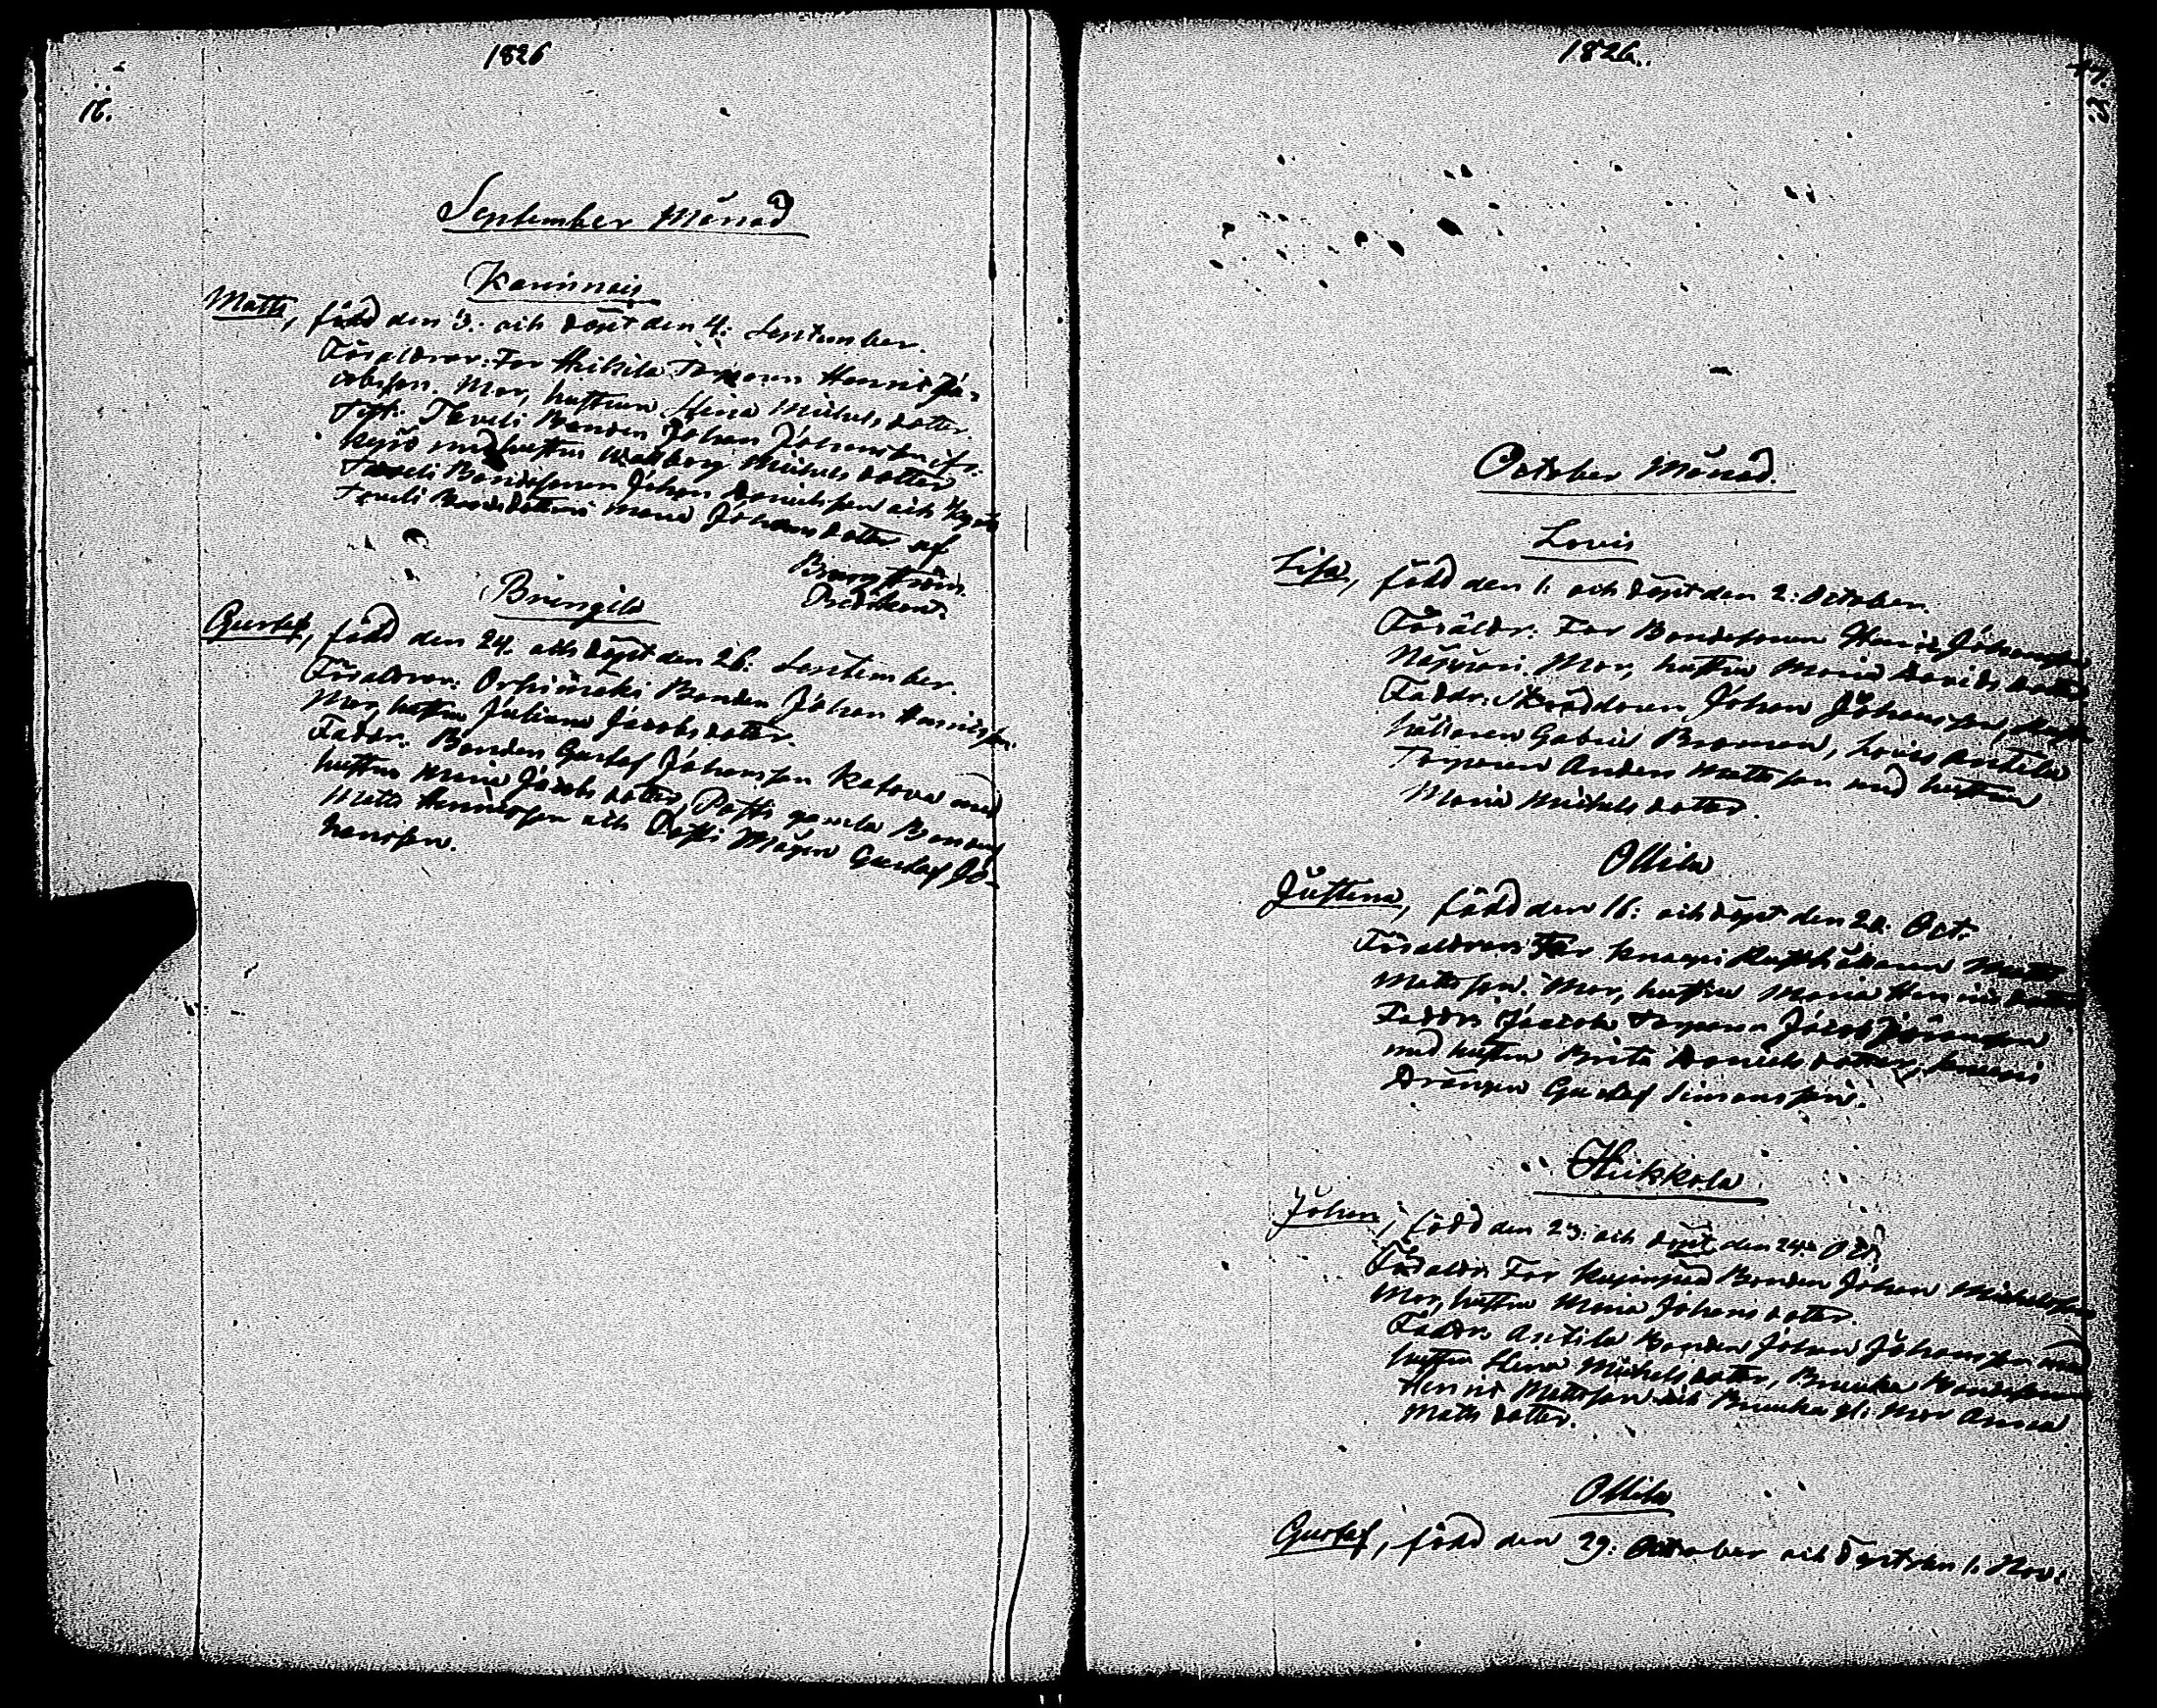 1826
16.
September Månad
Karinnais
Matts, född den 3. och döpt den 4: September.
Föräldrar: Far Heikilä Torparen Henric Ja-
cobsson. Mor, hustrun Stina Michelsdotter.
Test: Taveli Bonden Johan Johansson ifr.
Kyrö med hustrun Walborg Michelsdotter
Taveli Bondesonen Johan Danielsson och Kyrö
Taveli Bondedottren Maria Johansdotter af
Bergström.
Predikant.
Bringilä
Gustaf, född den 24. och döpt den 26: September.
Föräldrar: Orhinieki Bonden Johan Henricsson.
Mor, hustrun Juliana Jacobsdotter.
Faddr: Bonden Gustaf Johansson Katova med
hustrun Maria Jacobsdotter, Pässi gamla Bonden
Matts Henricsson och Pässi Mågen Gustaf Jo-
hansson.
1826.
October Månad.
Lovis
Lisa, född den 1: och döpt den 2: October.
Föräldr: Far Bondesonen Henric Johansson
Mor, hustrun Maria Davidsdotter
Faddr: Skräddaren Johan Johansson,
Gabriel Broman, Lovis Anttila
Torparen Anders Mattsson med hustrun
Maria Michelsdotter.
Ollila
Justina, född den 16: och döpt den 20: Oct:
Föräldrar: Far Knaapi Rusthållaren Matts
Mattsson. Mor, hustrun Maria Henricsdotter
Faddr: Jaacola Torparen Jacob Johansson
med hustrun Brita Danielsdotter, Simoni
Drängen Gustaf Simonsson.
Heikkola
Johan, född den 23: och döpt den 24: Oct.
Föräldr: Far Kujanpää Bonden Johan Michelsson
Mor, hustrun Maria Johansdotter.
Faddr: Anttila Bonden Johan Johansson med
hustrun Stina Michelsdotter, Bruuka Bondesonen
Henric Mattsson och Bruuka gl: Mor Anna
Matsdotter.
Ollila
Gustaf, född den 29: October och döpt den 1. Nov: